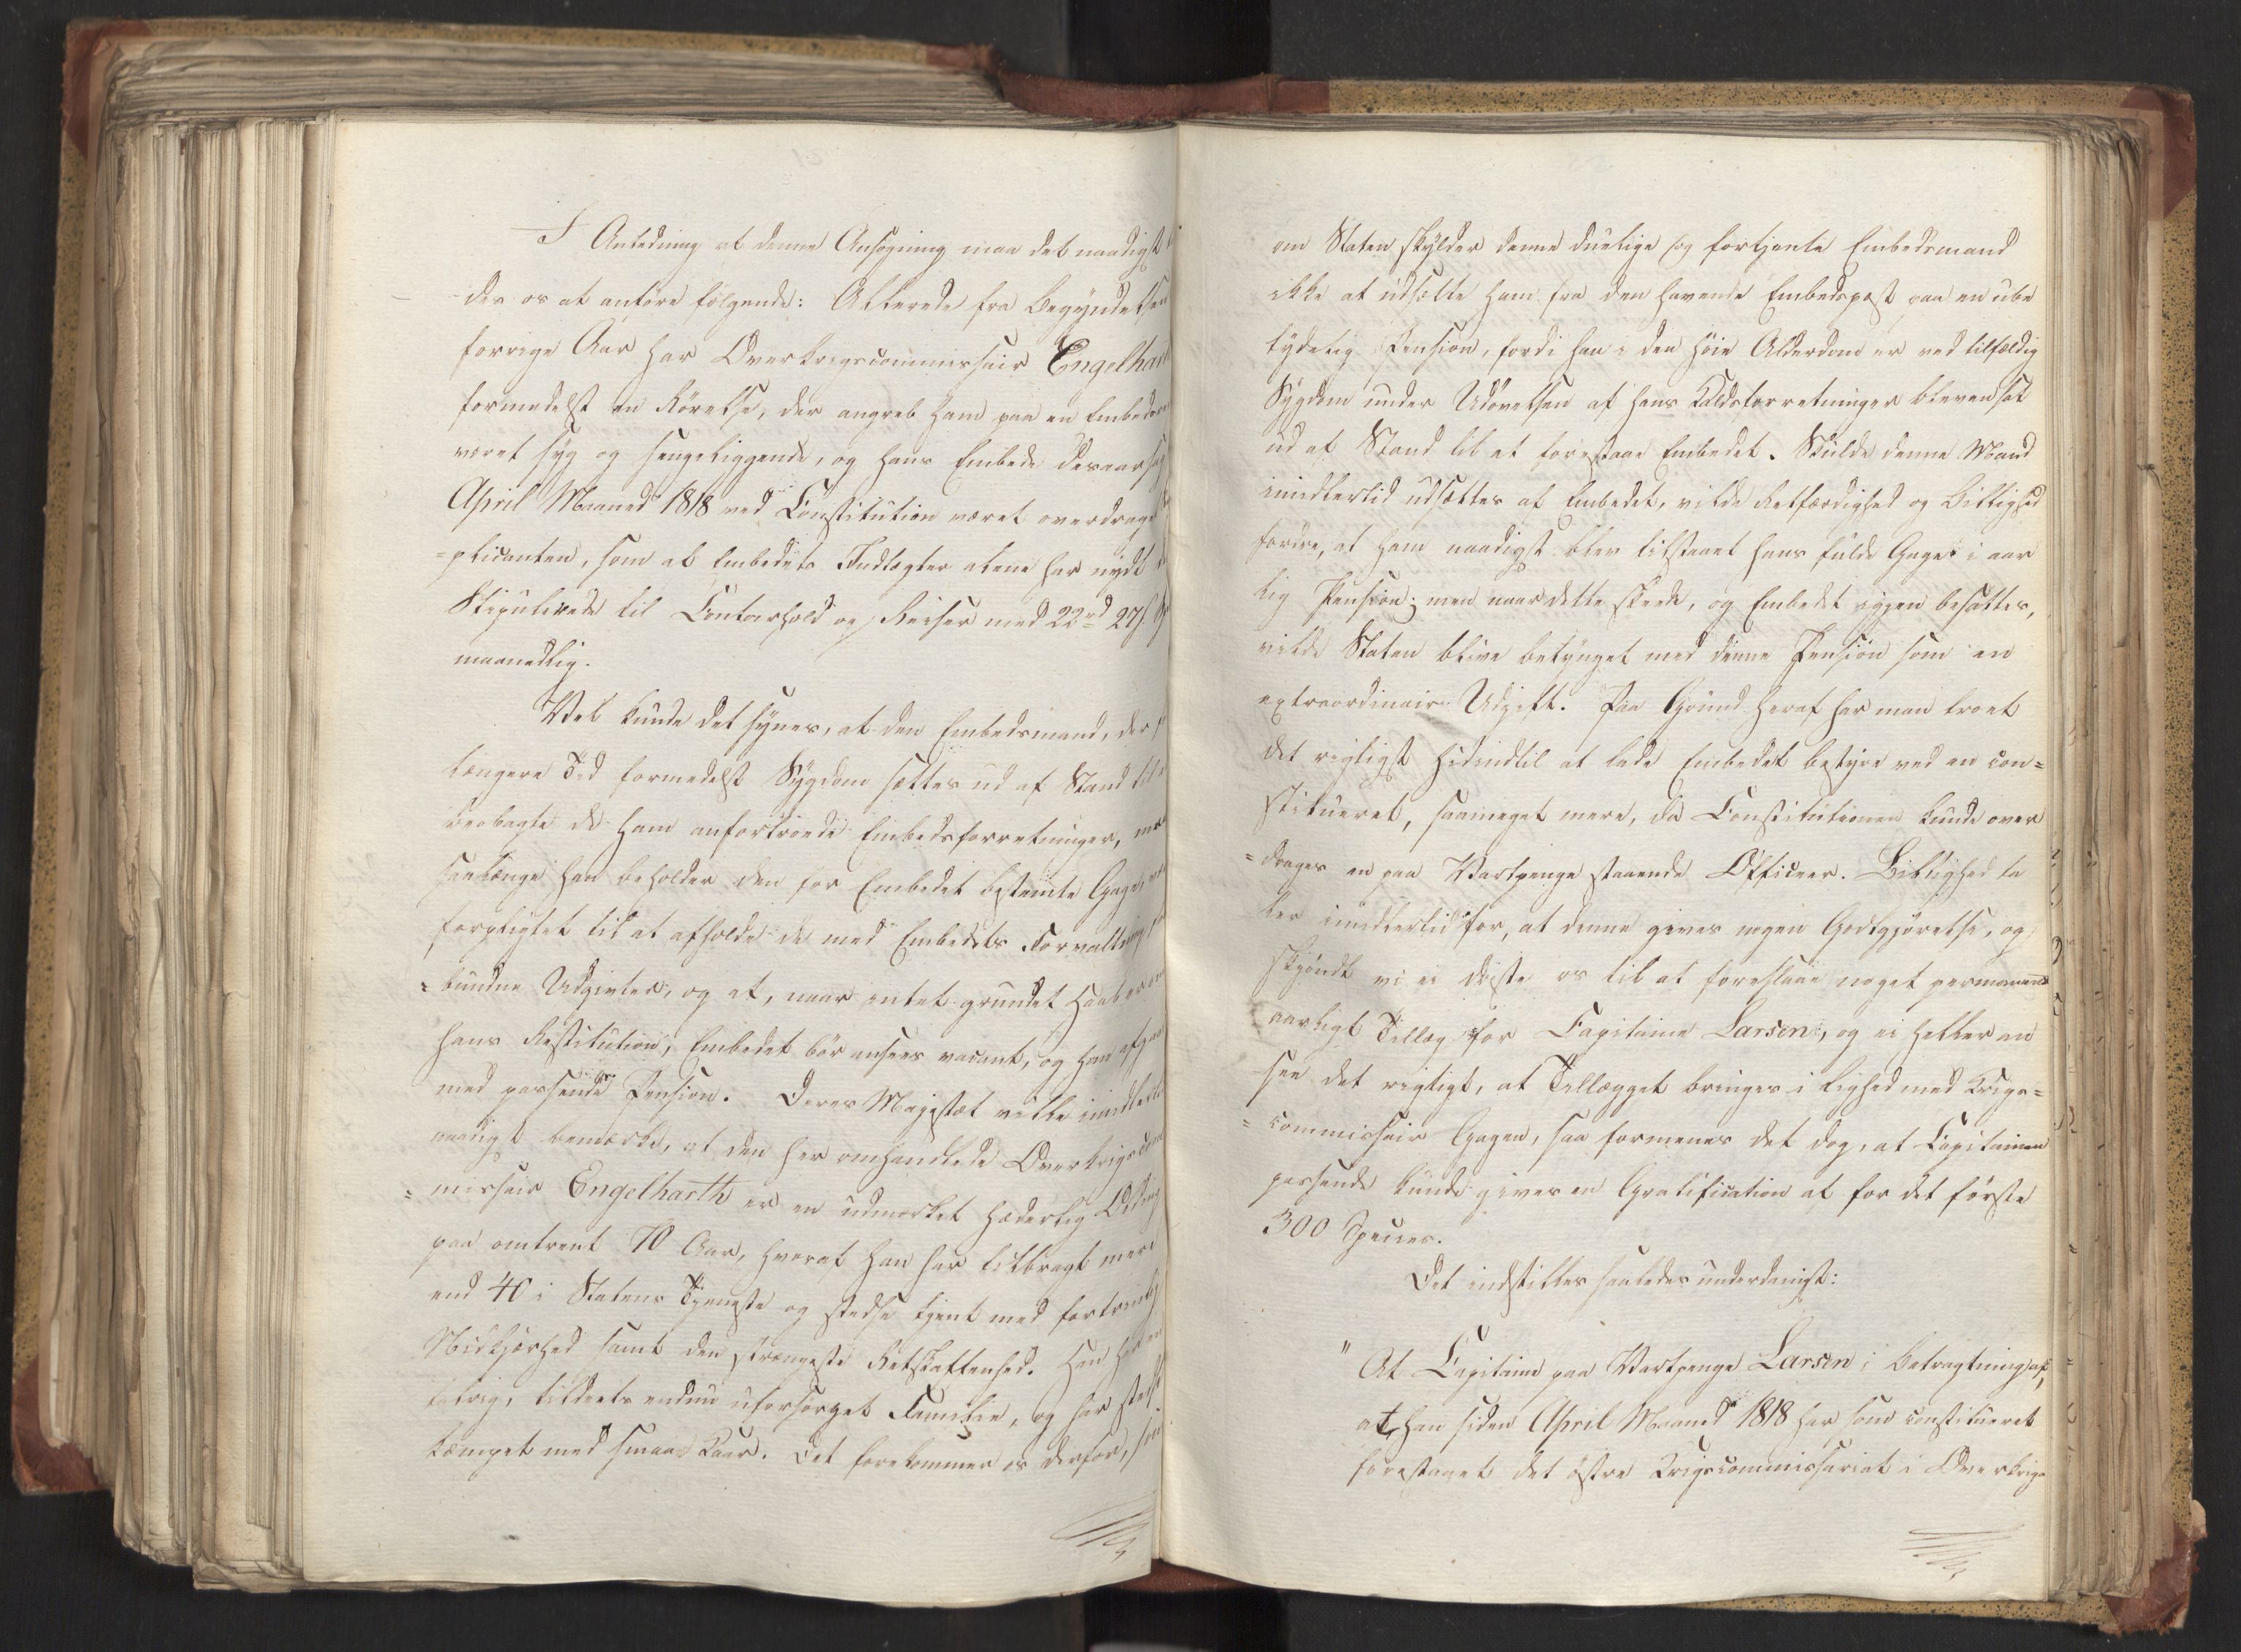 I Anledning af denne Ansøgning maa det naadigst
des os at anføre følgende: Allerede fra Begyndelsen
forrige Aar har Overkrigscommissair Engelhart
formedelst en Rørelse, der angreb ham paa en Embeds
været syg og sengeliggende, og hans Embede desaarsag
April Maaned 1818 ved Constitution været overdraget
=plicanten, som af Embedets Indtægter alene har nydt
Stipulerede til Contoirhold og Reiser med 22 rd 27 s.
maanedlig.
Vel kunde det synes, at den Embedsmand, der
længere Tid formedelst Sygdom sættes ud af Stand til
beobagte de ham anfortroede Embedsforretninger,
saalænge han beholder den for Embedet bestemte Gage,
forpligtet til at afholde de med Embedets Forvaltning
=bundne Udgivter, og at, naar intet grundet Haab er om
hans Restitution, Embedet bør ansees vacant, og han afgaae
med passende Pension. Deres Majestæt ville imidlertid
naadigst bemærke, at den her omhandlede Overkrigscom
=missair Engelharth er en udmærket hæderlig Olding
paa omtrent 70 Aar, hvoraf han har tilbragt mere
end 40 i Statens Tjeneste og stedse tjent med fortrinlig
Nidkjærhed samt den strængeste Retskaffenhed. Han har en
talrig, tildeels endnu uforsørget Familie, og har stedse
kæmpet med smaae Kaar. Det forekommer os derfor, som
om Staten skylder denne duelige og fortjente Embedsmand
ikke at udsætte ham fra den havende Embedspost paa en ube
tydelig Pension, fordi han i den høie Alderdom er ved tilfældig
Sygdom under Udøvelsen af hans Kaldsforretninger bleven sat
ud af Stand til at forestaae Embedet. Skulde denne Mand
imidlertid udsættes af Embedet, vilde Retfærdighed og Billighed
fordre, at ham naadigst blev tilstaaet hans fulde Gage i aar
lig Pension; men naar dette skeede, og Embedet igjen besattes,
vilde Staten blive betynget med denne Pension som en
extraordinair Udgift. Paa Grund heraf har man troet
det rigtigst hidindtil at lade Embedet bestyre ved en con=
stitueret, saameget mere, da Constitutionen kunde over
=drages en paa Vartpenge staaende Officeer. Billighed ta
ler imidlertid for, at denne gives nogen Godtgjørelse, og
skjøndt vi ei driste os til at foreslaae noget permanent
aarligt Tillæg for Capitaine Larsen, og ei heller an
see det rigtigt, at Tillægget bringes i Lighed med Krigs=
=commissair Gagen, saa formenes det dog, at Capitainen
passende kunde gives en Gratification af for det første
300 Species.
Det indstilles saaledes underdanigst:
"At Capitaine paa Vartpenge Larsen i Betragtning af,
at han siden April Maaned 1818 har som constitueret
forestaaet det østre Krigscommissariat i Overkrigs